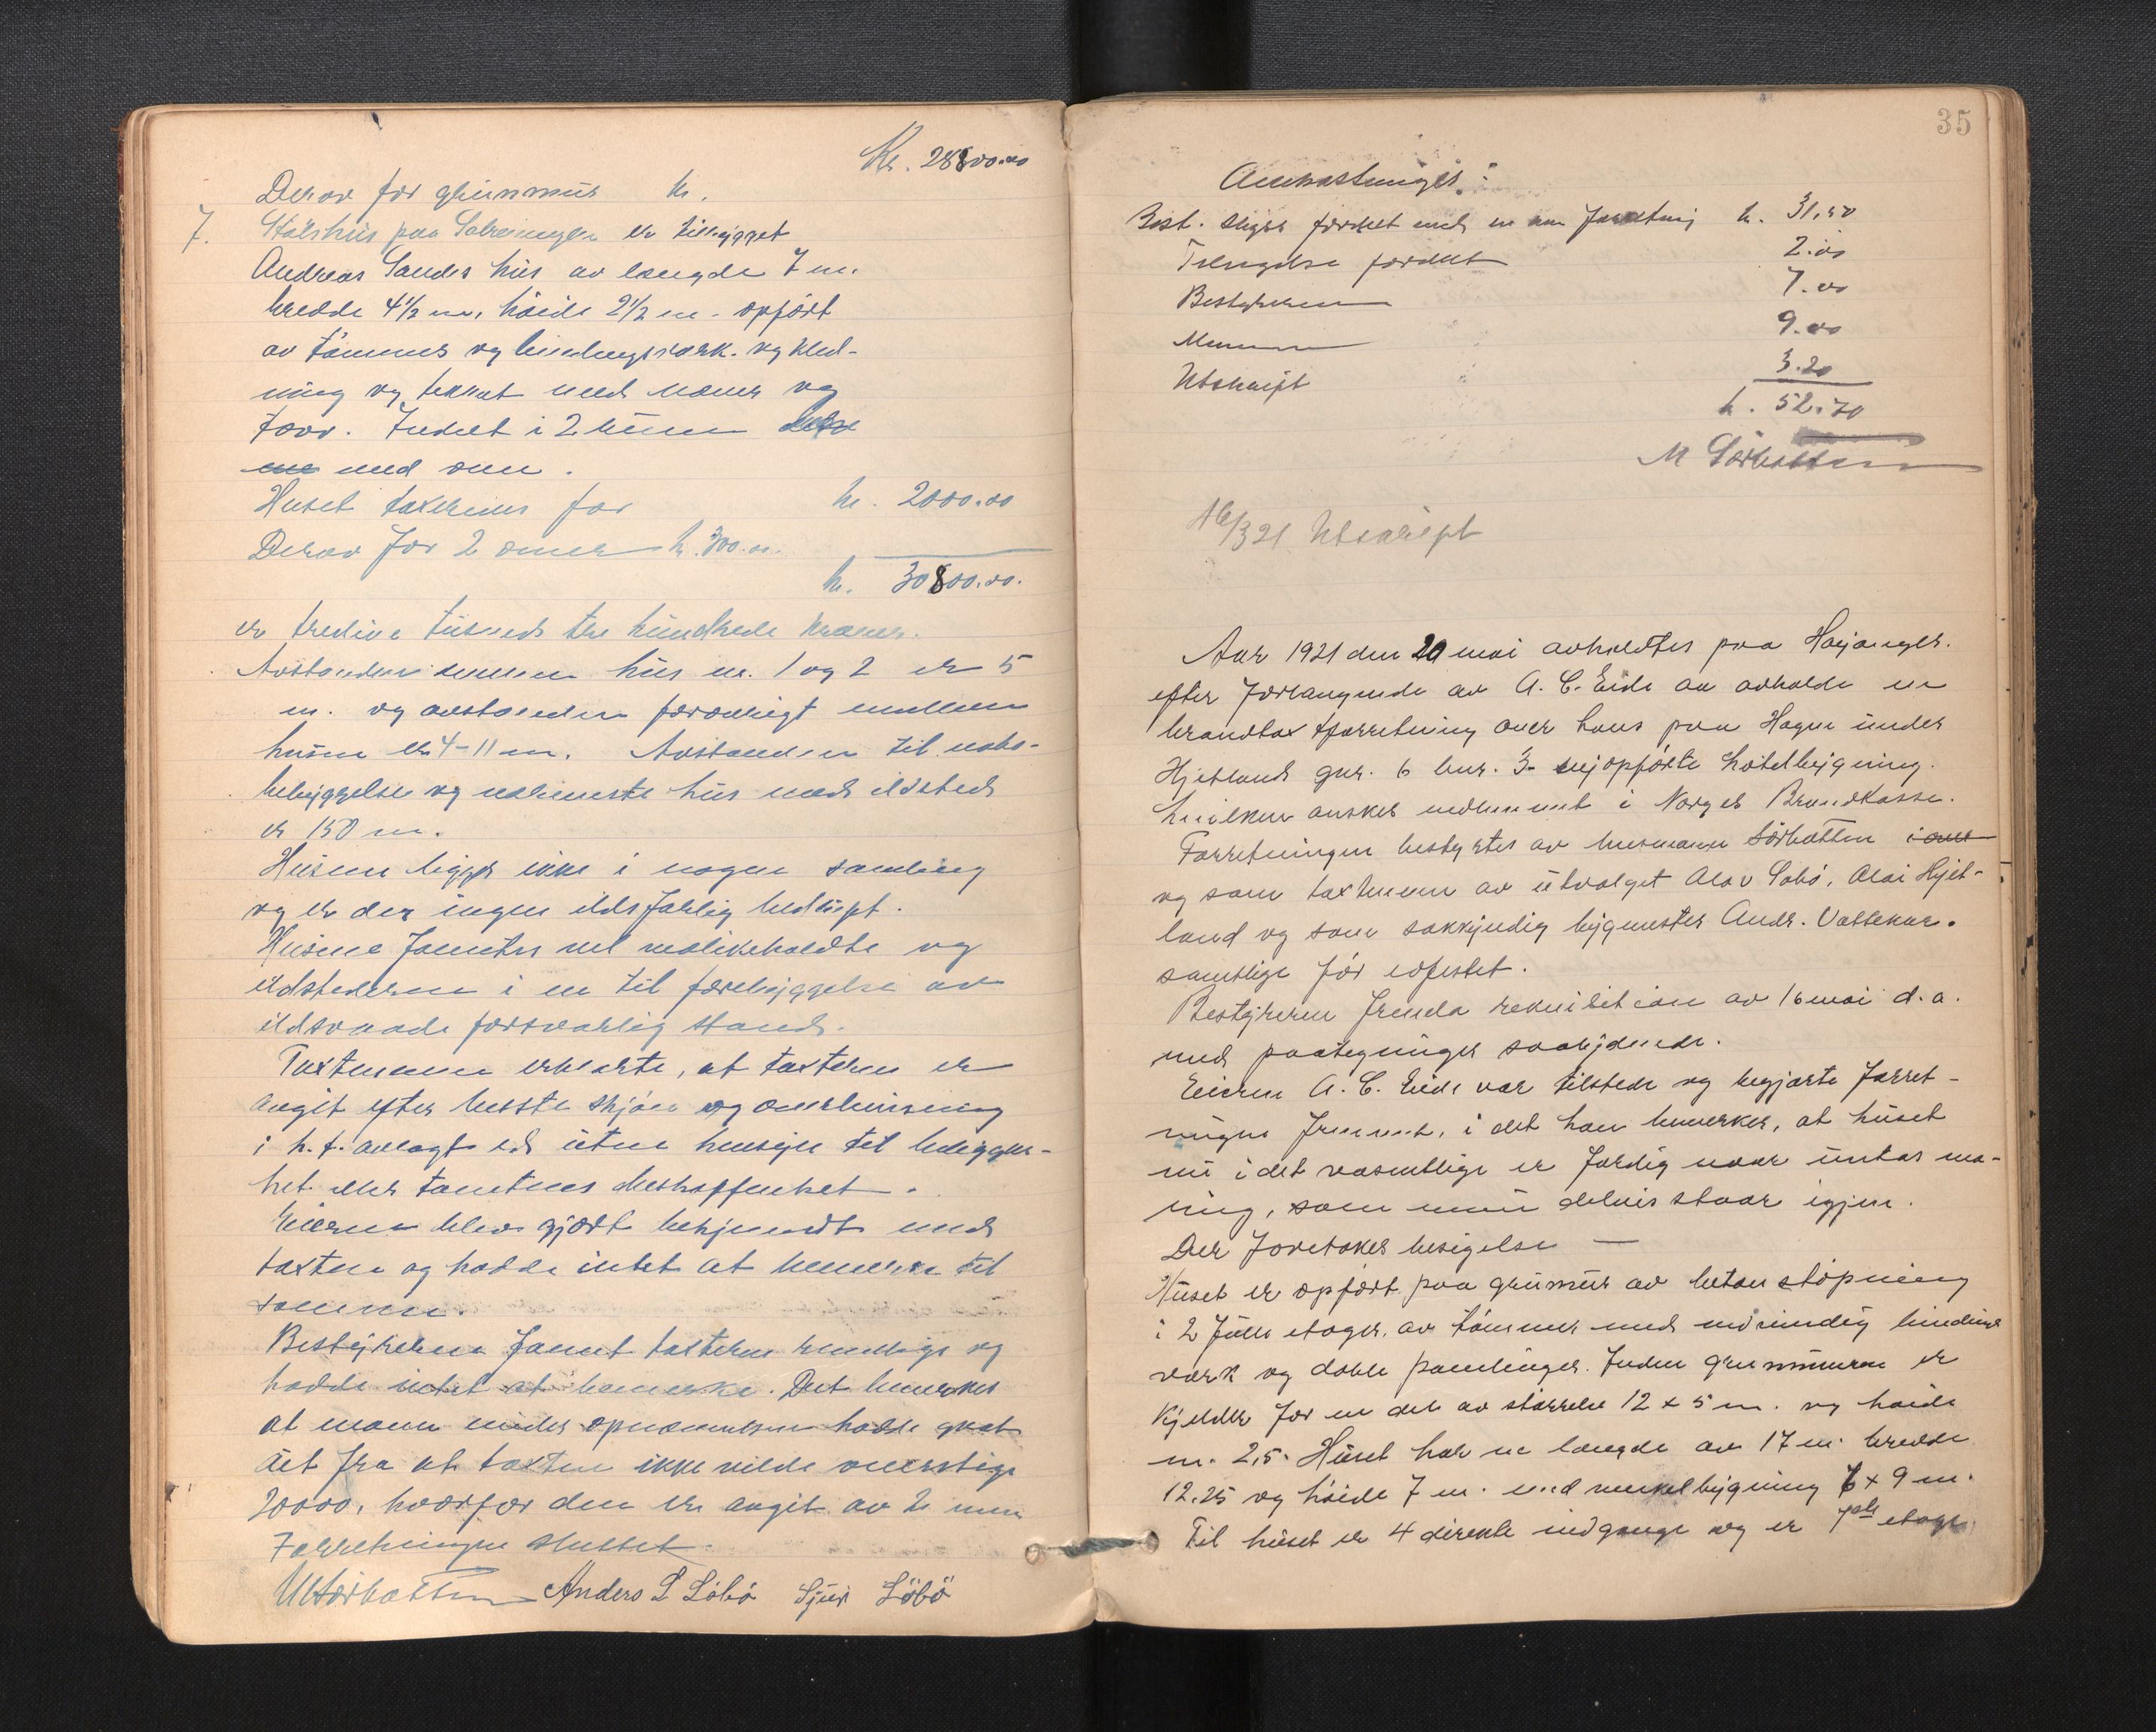 Kr. 28800.00
Derav for grunmur kr.
7. Stølshus paa er tilbygget
Andreas Sandes hus av længde 7 m.
bredde 4½ m, høide 2½ m. opført
av tømmer og bindingsværk. og kled-
ning og tekket med næver og
torv. Indret i 2 rum
med ovn.
Huset takseres for kr. 2000.00
Derav for 2 ovner kr. 300.00.
kr. 30800.00.
er tredive tusend hundrede kroner.
Avstanden mellem hus nr. 1 og 2 er 5
m. og avstanden forøvrigt mellem
husene er 4-11 m. Avstanden til nabo-
bebyggelse og nærmeste hus med ildsted
er 150 m.
Husene ligger ikke i nogen samling
og er der ingen ildsfarlig bedrift.
Husene fandtes vel vedlikeholdte og
ildstederne i en til forebyggelse av
ildsvaade forsvarlig stand.
Taxtmenn erklærte, at taxten er
angit efter beste skjøn og overbevisning
i h.t. avlagt ed uten hensyn til beliggen-
het eller tomtens beskaffenhet.
Eieren blev gjort bekjendt med
taxten og hadde intet at bemerke til
samme.
Bestyreren fant taxten rimelige og
hadde intet at bemerke. Det bemerkes
at mann under opnævnelsen hadde gaat
ut fra at taxten ikke vilde overstige
20000, hvorfor den er angit av 2 menn
Forretningen sluttet.
M Sørbotten Anders L Løbø Sjur Löbö
35
Omkostninger:
Best. skyss fordelt med en forretning kr. 31,50
Tilsigelse fordelt 2.00
Bestyreren 7.00
Mennene 9.00
Utskrift 3.20
kr. 52.70
M Sørbotten
16/3 21 Utskrift
Aar 1921 den 20 mai avholdtes paa Høyanger.
efter forlangende av A. C. Eide at avholde en
brandtaxtforretning over hans paa Hagen under
Hjetland gnr. 6 bnr. 3 nyopførte hotelbygning.
hvilken ønskes indlemmet i Norges Brandkasse.
Forretningen bestyrtes av lensmann Sørbotten
og som taxtmenn av utvalget Olav Løbø, Olai Hjet-
land og som sakkyndig bygmester Andr. Vattekar.
samtlige før edfestet.
Bestyreren fremla rekvisition av 16 mai d.a.
med paategninger saalydende.
Eieren A. C. Eide var tilstede og begjærte forret-
ningen fremmet, i det han bemerker, at huset
nu i det væsentlige er færdig naar untas ma-
ling, som delvis staar igjen.
Der foretokes besigelse —
Huset er opført paa grunmur av betonstøpning
i 2 fulle etager. av tømmer med utvendig bindings
værk og doble panelinger. Inden grunmuren er
kjelder for en del av størrelse 12 x 5 m. og høide
m. 2,5. Huset har en længde av 17 m. bredde
12.25 og høide 7 m. med vinkelbygning 6 x 9 m.
Til huset er 4 direkte indgange og er 1ste etage